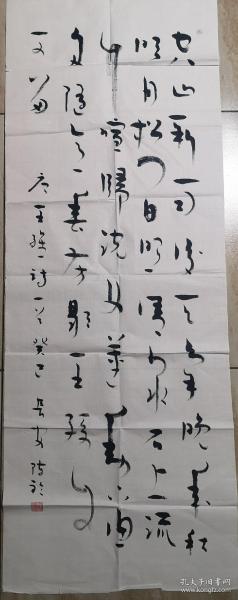 空山新雨後天气晚来秋
明月松间照清泉石上流
竹喧歸浣女蓮動下漁
舟随意春芳歇王孫自
可留 唐王維诗一首 癸巳 長安
孔夫子旧书网